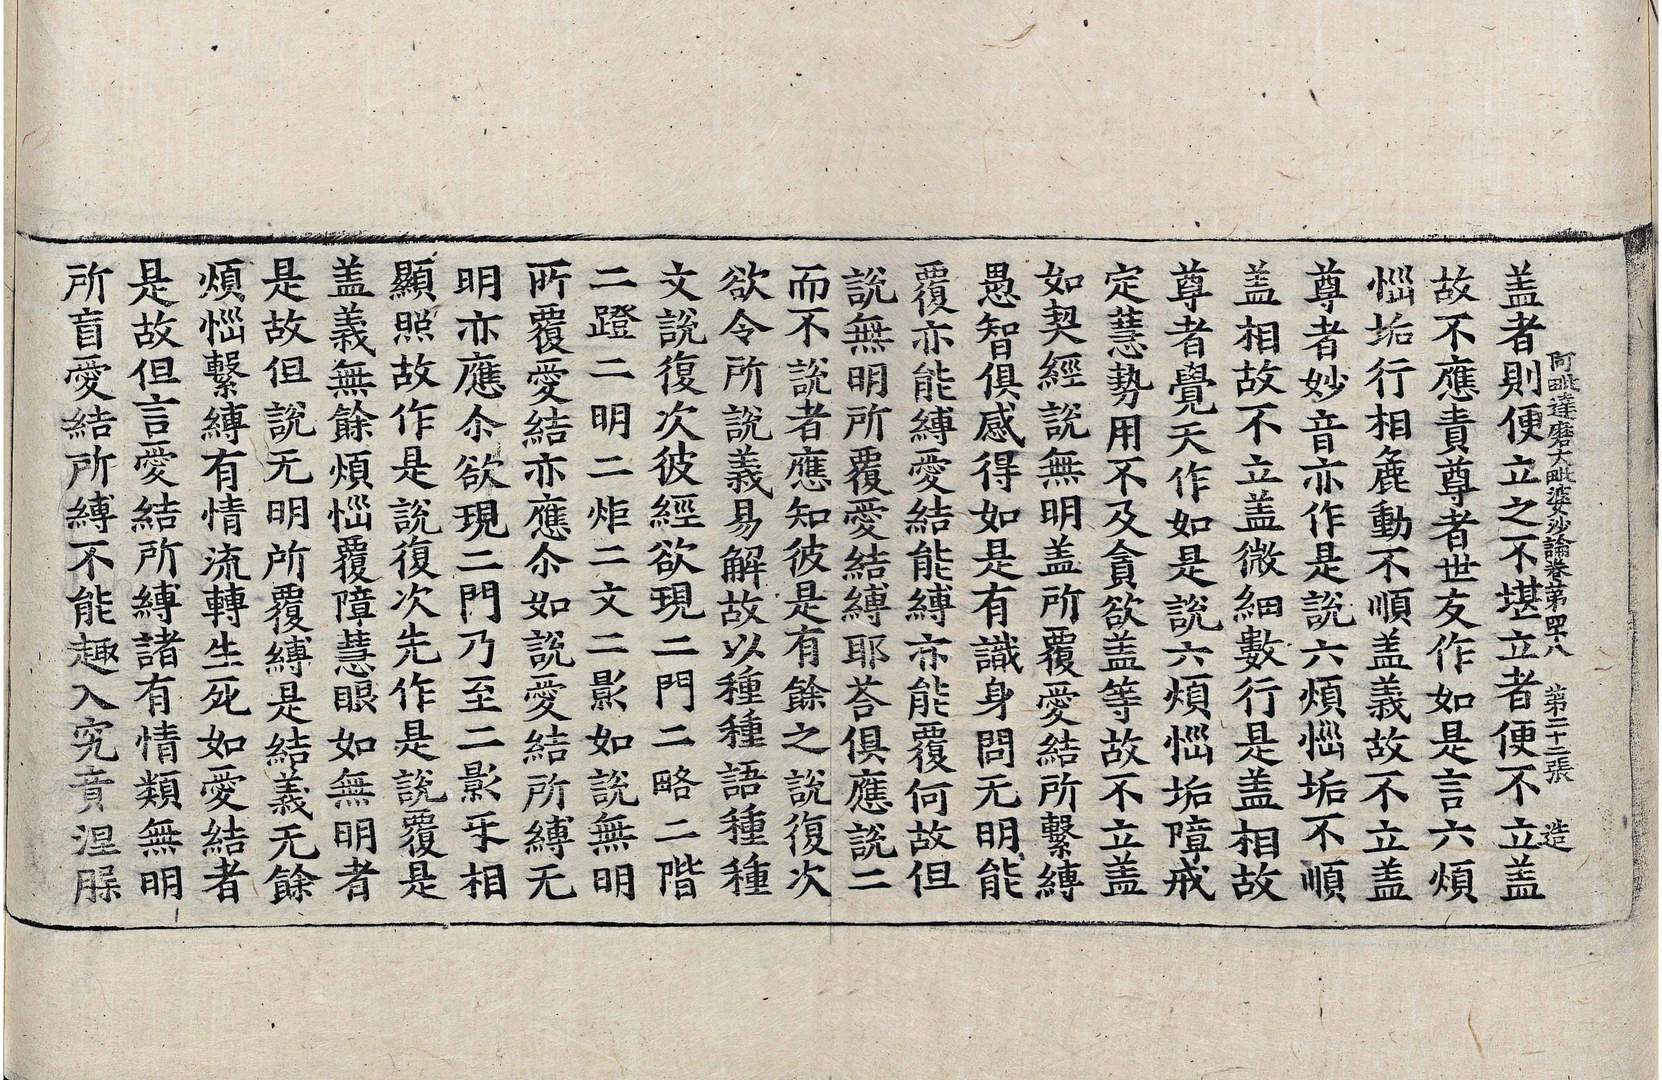 阿毗達磨大毗婆沙論卷第四十八 第二十二張 造
盖者則便立之不堪立者便不立盖
故不應責尊者世友作如是言六煩
惱垢行相麁動不順盖義故不立盖
尊者妙音亦作是說六煩惱垢不順
盖相故不立盖微細數行是盖相故
尊者覺天作如是說六煩惱垢障戒
定慧勢用不及貪欲盖等故不立盖
如契經說無明盖所覆愛結所繫縛
愚智俱感得如是有識身問无明能
覆亦能縛愛結能縛亦能覆何故但
說無明所覆愛結縛耶荅俱應說二
而不說者應知彼是有餘之說復次
欲令所說義易解故以種種語種種
文說復次彼經欲現二門二略二階
二蹬二明二炬二文二影如說無明
所覆愛結亦應尒如說愛結所縛无
明亦應尒欲現二門乃至二影乎相
顯照故作是說復次先作是說覆是
盖義無餘煩惱覆障慧眼如無明者
是故但說无明所覆縛是結義无餘
煩惱繫縛有情流轉生死如愛結者
是故但言愛結所縛諸有情類無明
所盲愛結所縛不能趣入究竟涅脲